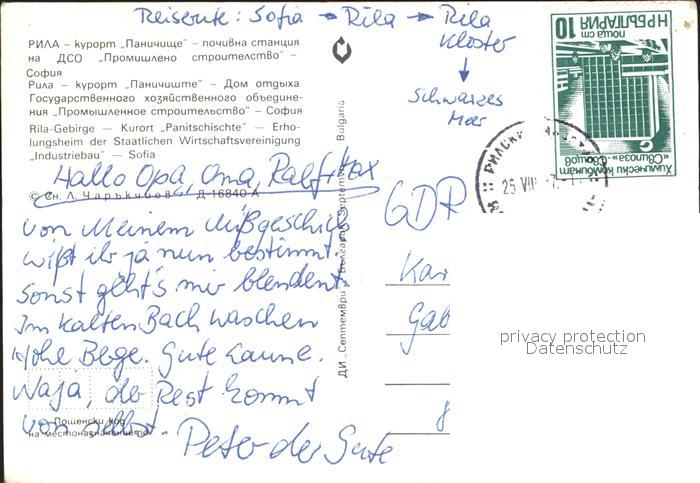 Reiseroute: Sofia → Rila → Rila
Kloster
↓
Schwarzes
Meer
РИЛА – курорт „Паничище" – почивна станция
на ДСО „Промишлено строителство" –
София
Рила – курорт „Паничиште" – Дом отдыха
Государственного хозяйственного объедине-
ния „Промышленное строительство" – София
Rila-Gebirge – Kurort „Panitschischte" – Erho-
lungsheim der Staatlichen Wirtschaftsvereinigung
„Industriebau" – Sofia
© Сн. Л. Чаръкчиев Д-16840 А
Hallo Opa, Oma, Ralf + Max
von Meinem Mißgeschick
wißt ihr ja nun bestimmt.
Sonst geht's mir blendent.
Im kalten Bach waschen
Hohe Berge. Gute Laune.
Naja, der Rest kommt
von selbst.
Peter der Gute
Пощенски код
на местоназначението
ДИ „Септември" България
Septemvri Bulgaria
GDR
Kar
Gab
8
НР БЪЛГАРИЯ
поща ст 10
Химически комбинат
„Свилоза"-Свищов
25 VIII
privacy protection
Datenschutz